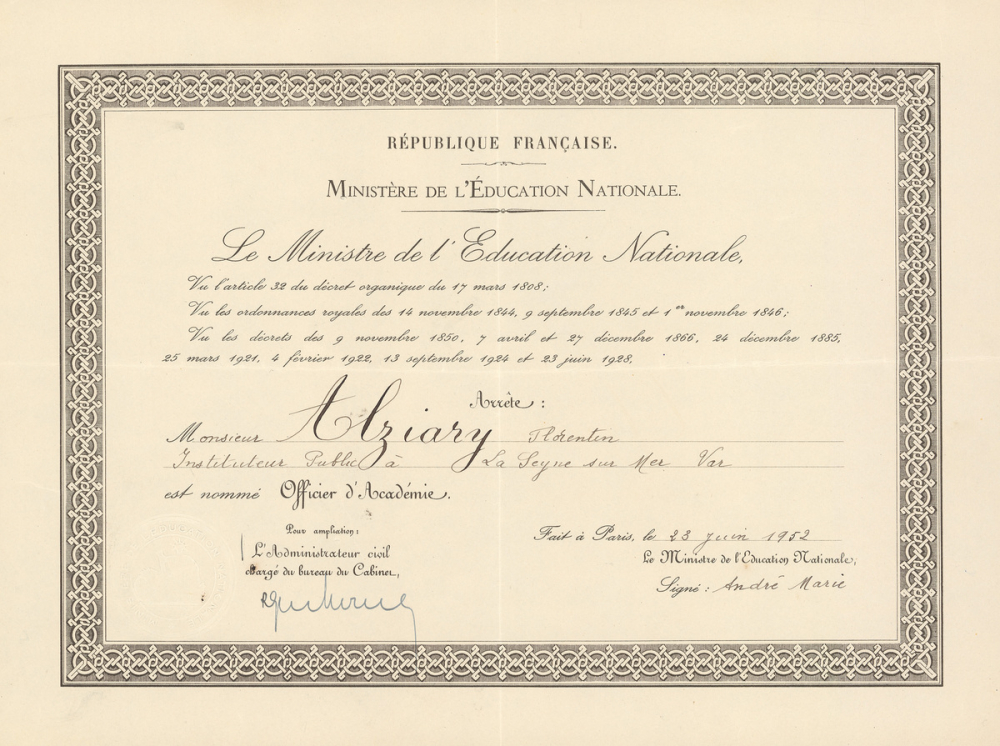 RÉPUBLIQUE FRANÇAISE.
MINISTÈRE DE L'ÉDUCATION NATIONALE.
Le Ministre de l'Education Nationale,
Vu l'article 32 du décret organique du 17 mars 1808;
Vu les ordonnances royales des 14 novembre 1844, 9 septembre 1845 et 1er novembre 1846;
Vu les décrets des 9 novembre 1850, 7 avril et 27 décembre 1866, 24 décembre 1885,
25 mars 1921, 4 février 1922, 13 septembre 1924 et 23 juin 1928,
Arrête :
Monsieur Alziary Florentin
Instituteur Public à La Seyne sur Mer Var
est nommé Officier d'Académie.
Pour ampliation:
L'Administrateur civil
chargé du bureau du Cabinet,
Fait à Paris, le 23 juin 1952
Le Ministre de l'Education Nationale,
Signé : André Marie